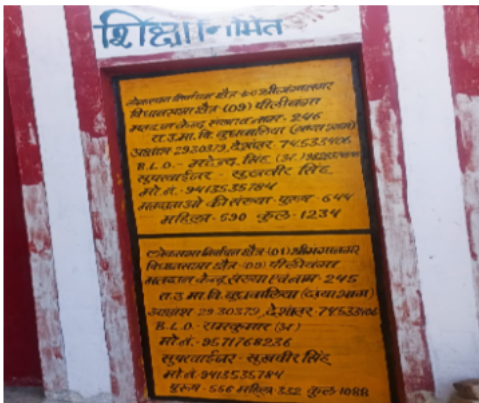 शिक्षा निमित
लोकसभा निर्वाचन क्षेत्र-(01) श्रीगंगानगर
विधानसभा क्षेत्र-(09) पीलीबंगा
मतदान केन्द्र संख्या व नाम- 246
रा.उ.मा.वि. बुधवालिया
अक्षांश 2930379, देशांतर 74533106
B.L.O.- महेन्द्र सिंह (अ.)
सुपरवाईजर - सुखवीर सिंह
मो.नं.- 9413535784
मतदाताओं की संख्या- पुरुष - 644
महिला- 590 कुल- 1234
लोकसभा निर्वाचन क्षेत्र-(01) श्रीगंगानगर
विधानसभा क्षेत्र-(09) पीलीबंगा
मतदान केन्द्र संख्या एवं नाम- 245
रा.उ.मा.वि. बुधवालिया (दायां भाग)
अक्षांश 2930379, देशांतर- 74533106
B.L.O- रामकुमार (अ.)
मो.नं.- 9571768236
सुपरवाईजर - सुखवीर सिंह
मो.नं.- 9413535784
पुरुष- 556 महिला- 532 कुल- 1088